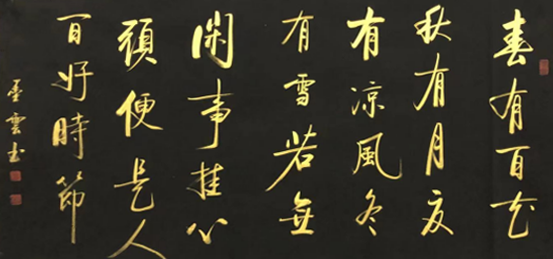 春有百花
秋有月夏
有凉風冬
有雪若無
閑事挂心
頭便是人
間好時節
雲书